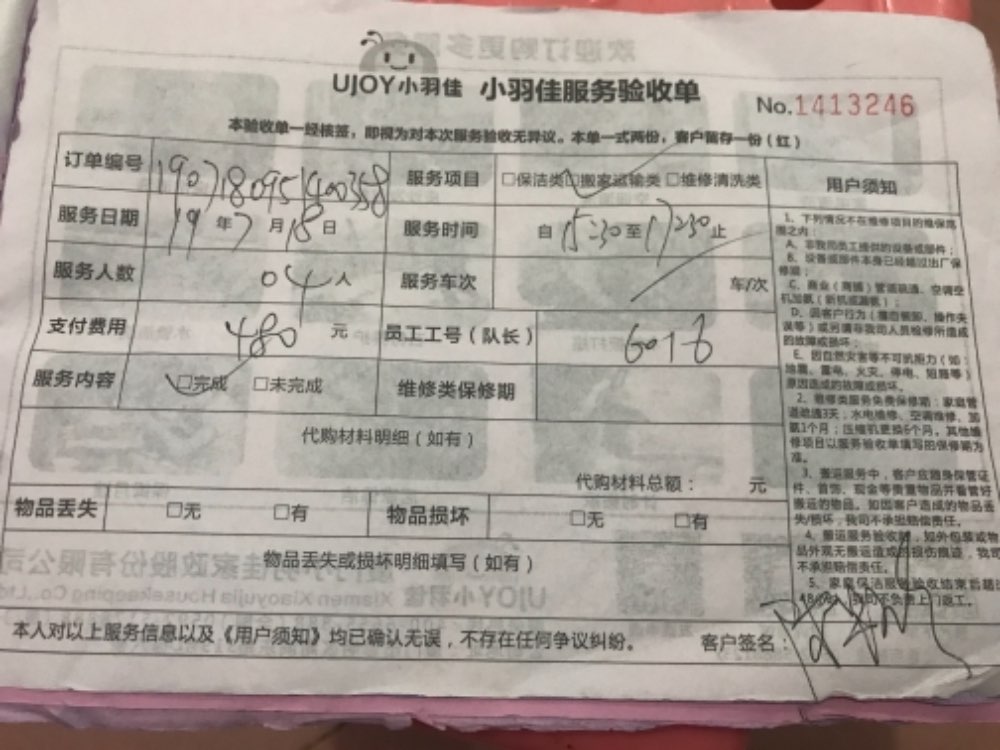 UJOY小羽佳 小羽佳服务验收单
No.1413246
本验收单一经核签，即视为对本次服务验收无异议。本单一式两份，客户留存一份（红）
订单编号 190718095400358 服务项目 □保洁类 □搬家运输类 □维修清洗类
服务日期 19年7月18日 服务时间 自15:30至17:30止
服务人数 04人 服务车次 车/次
支付费用 480 元 员工工号（队长） 6016
服务内容 □完成 □未完成 维修类保修期
代购材料明细（如有）
代购材料总额： 元
物品丢失 □无 □有 物品损坏 □无 □有
物品丢失或损坏明细填写（如有）
本人对以上服务信息以及《用户须知》均已确认无误，不存在任何争议纠纷。 客户签名：
用户须知
1、下列情况不在维修项目的维保范
围之内：
A、非我司员工提供的设备或部件；
B、设备或部件本身已经超过出厂保
修期；
C、商业（商铺）管道疏通、空调空
机加氨（新机或漏氨）；
D、因客户行为（
失误等）或另请非我司人员检修所造成
的故障或损坏；
E、因自然灾害等不可抗拒力（如：
地震、雷电、火灾、停电、短路等）
原因造成的故障或损坏。
2、维修类服务免费保修期：家庭管
道疏通3天，水电维修、空调维修、加
氨1个月；压缩机更换6个月。其他维
修项目以服务验收单填写的保修期为
准。
3、搬运服务中，客户应随身保管证
件、首饰、现金等贵重物品并看管好
搬运的物品。如因客户造成的物品丢
失/损坏，我司不承担赔偿责任。
4、搬运服务验收时，如外包装或物
品外观无搬运造成的损伤痕迹，我司
不承担赔偿责任。
5、家庭保洁服务验收结束后超过
48小时，我司不负责上门返工。